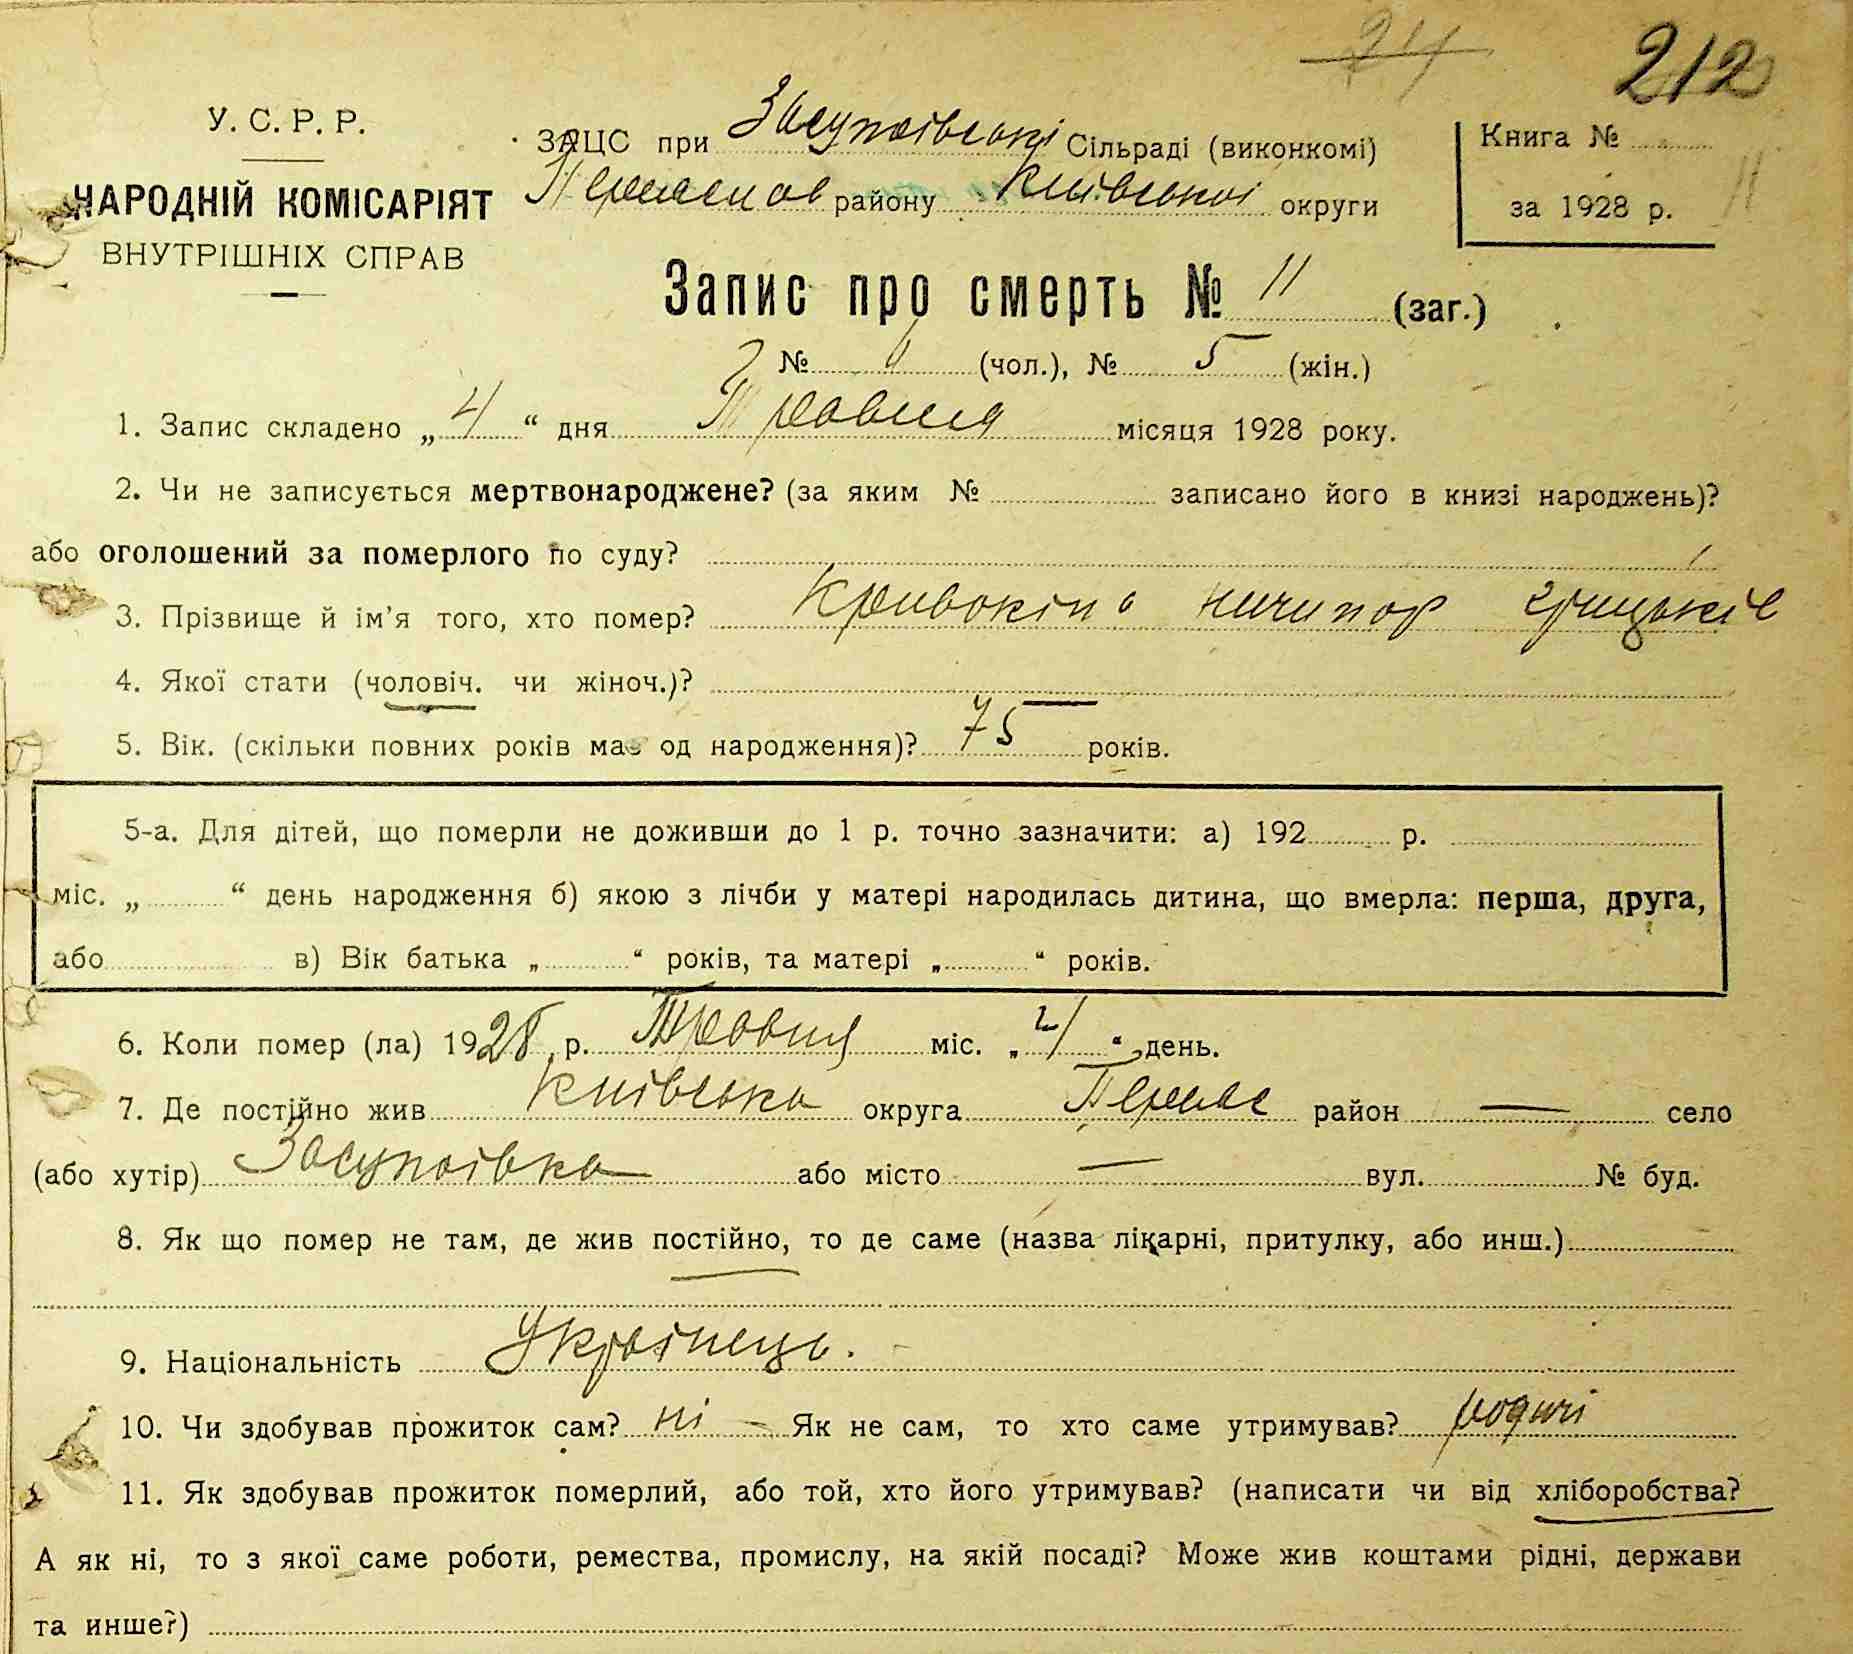 211
212
У. С. Р. Р.
ЗАЦС при Засупоївській Сільраді (виконкомі)
Книга № 11
НАРОДНІЙ КОМІСАРІЯТ
району Київської округи
за 1928 р.
ВНУТРІШНІХ СПРАВ
Запис про смерть № 11 (заг.)
№ (чол.), № 5 (жін.)
1. Запис складено „ 4 “ дня Травня місяця 1928 року.
2. Чи не записується мертвонароджене? (за яким № записано його в книзі народжень)?
або оголошений за померлого по суду?
3. Прізвище й ім'я того, хто помер? Кривокінь Ничипор Грицьків
4. Якої стати (чоловіч. чи жіноч.)?
5. Вік. (скільки повних років має од народження)? 75 років.
5-а. Для дітей, що померли не доживши до 1 р. точно зазначити: а) 192 р.
міс. „ “ день народження б) якою з лічби у матері народилась дитина, що вмерла: перша, друга,
або в) Вік батька „ “ років, та матері „ “ років.
6. Коли помер (ла) 1928 р. Травня міс. „ “ день.
7. Де постійно жив Київська округа район — село
(або хутір) Засупоївка або місто — вул. № буд.
8. Як що помер не там, де жив постійно, то де саме (назва лікарні, притулку, або инш.)
9. Національність Українець.
10. Чи здобував прожиток сам? ні – Як не сам, то хто саме утримував? родичі
11. Як здобував прожиток померлий, або той, хто його утримував? (написати чи від хліборобства?
А як ні, то з якої саме роботи, ремества, промислу, на якій посаді? Може жив коштами рідні, держави
та инше?)